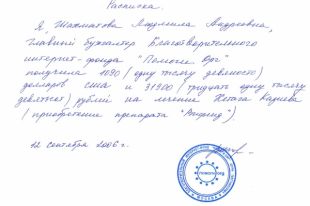 Расписка.
Я, Шахматова Людмила Андреевна,
главный бухгалтер Благотворительного
интернет-фонда "Помоги Орг"
получила 1090 (одну тысячу девяносто)
долларов сша и 31900 (тридцать одну тысячу
девятьсот) рублей на лечение
(приобретение препарата
12 сентября 2006 г.